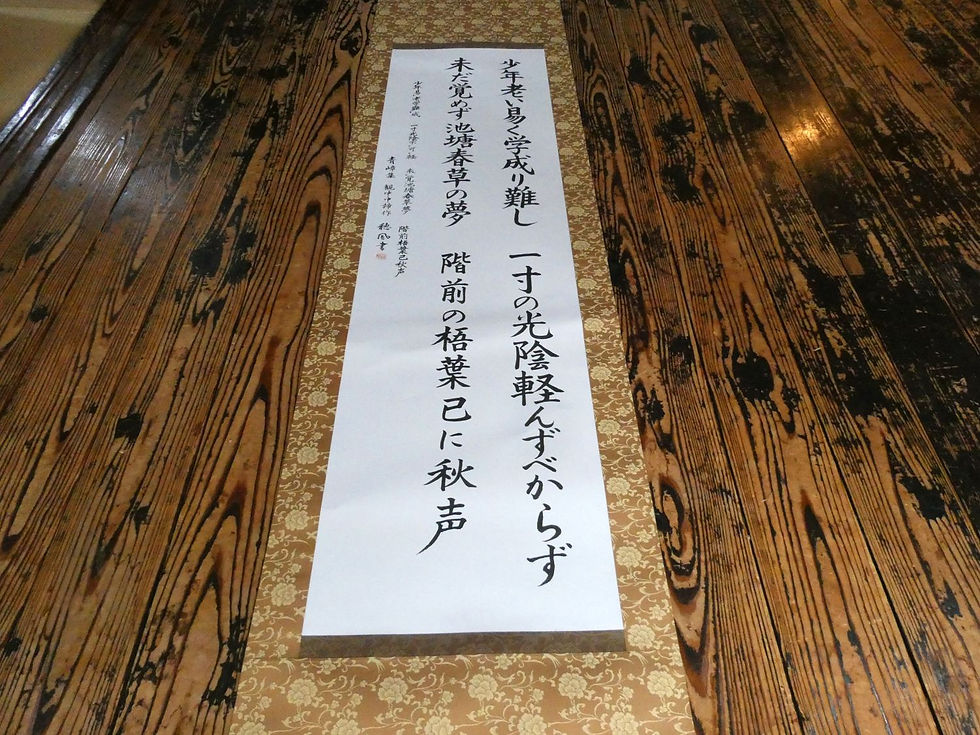 少年老い易く学成り難し 一寸の光陰軽んずべからず
未だ覚めず池塘春草の夢 階前の梧葉已に秋声
少年易老学難成 一寸光陰不可軽 未覚池塘春草夢 階前梧葉已秋声
青嶂集 観中中諦作 穂風書